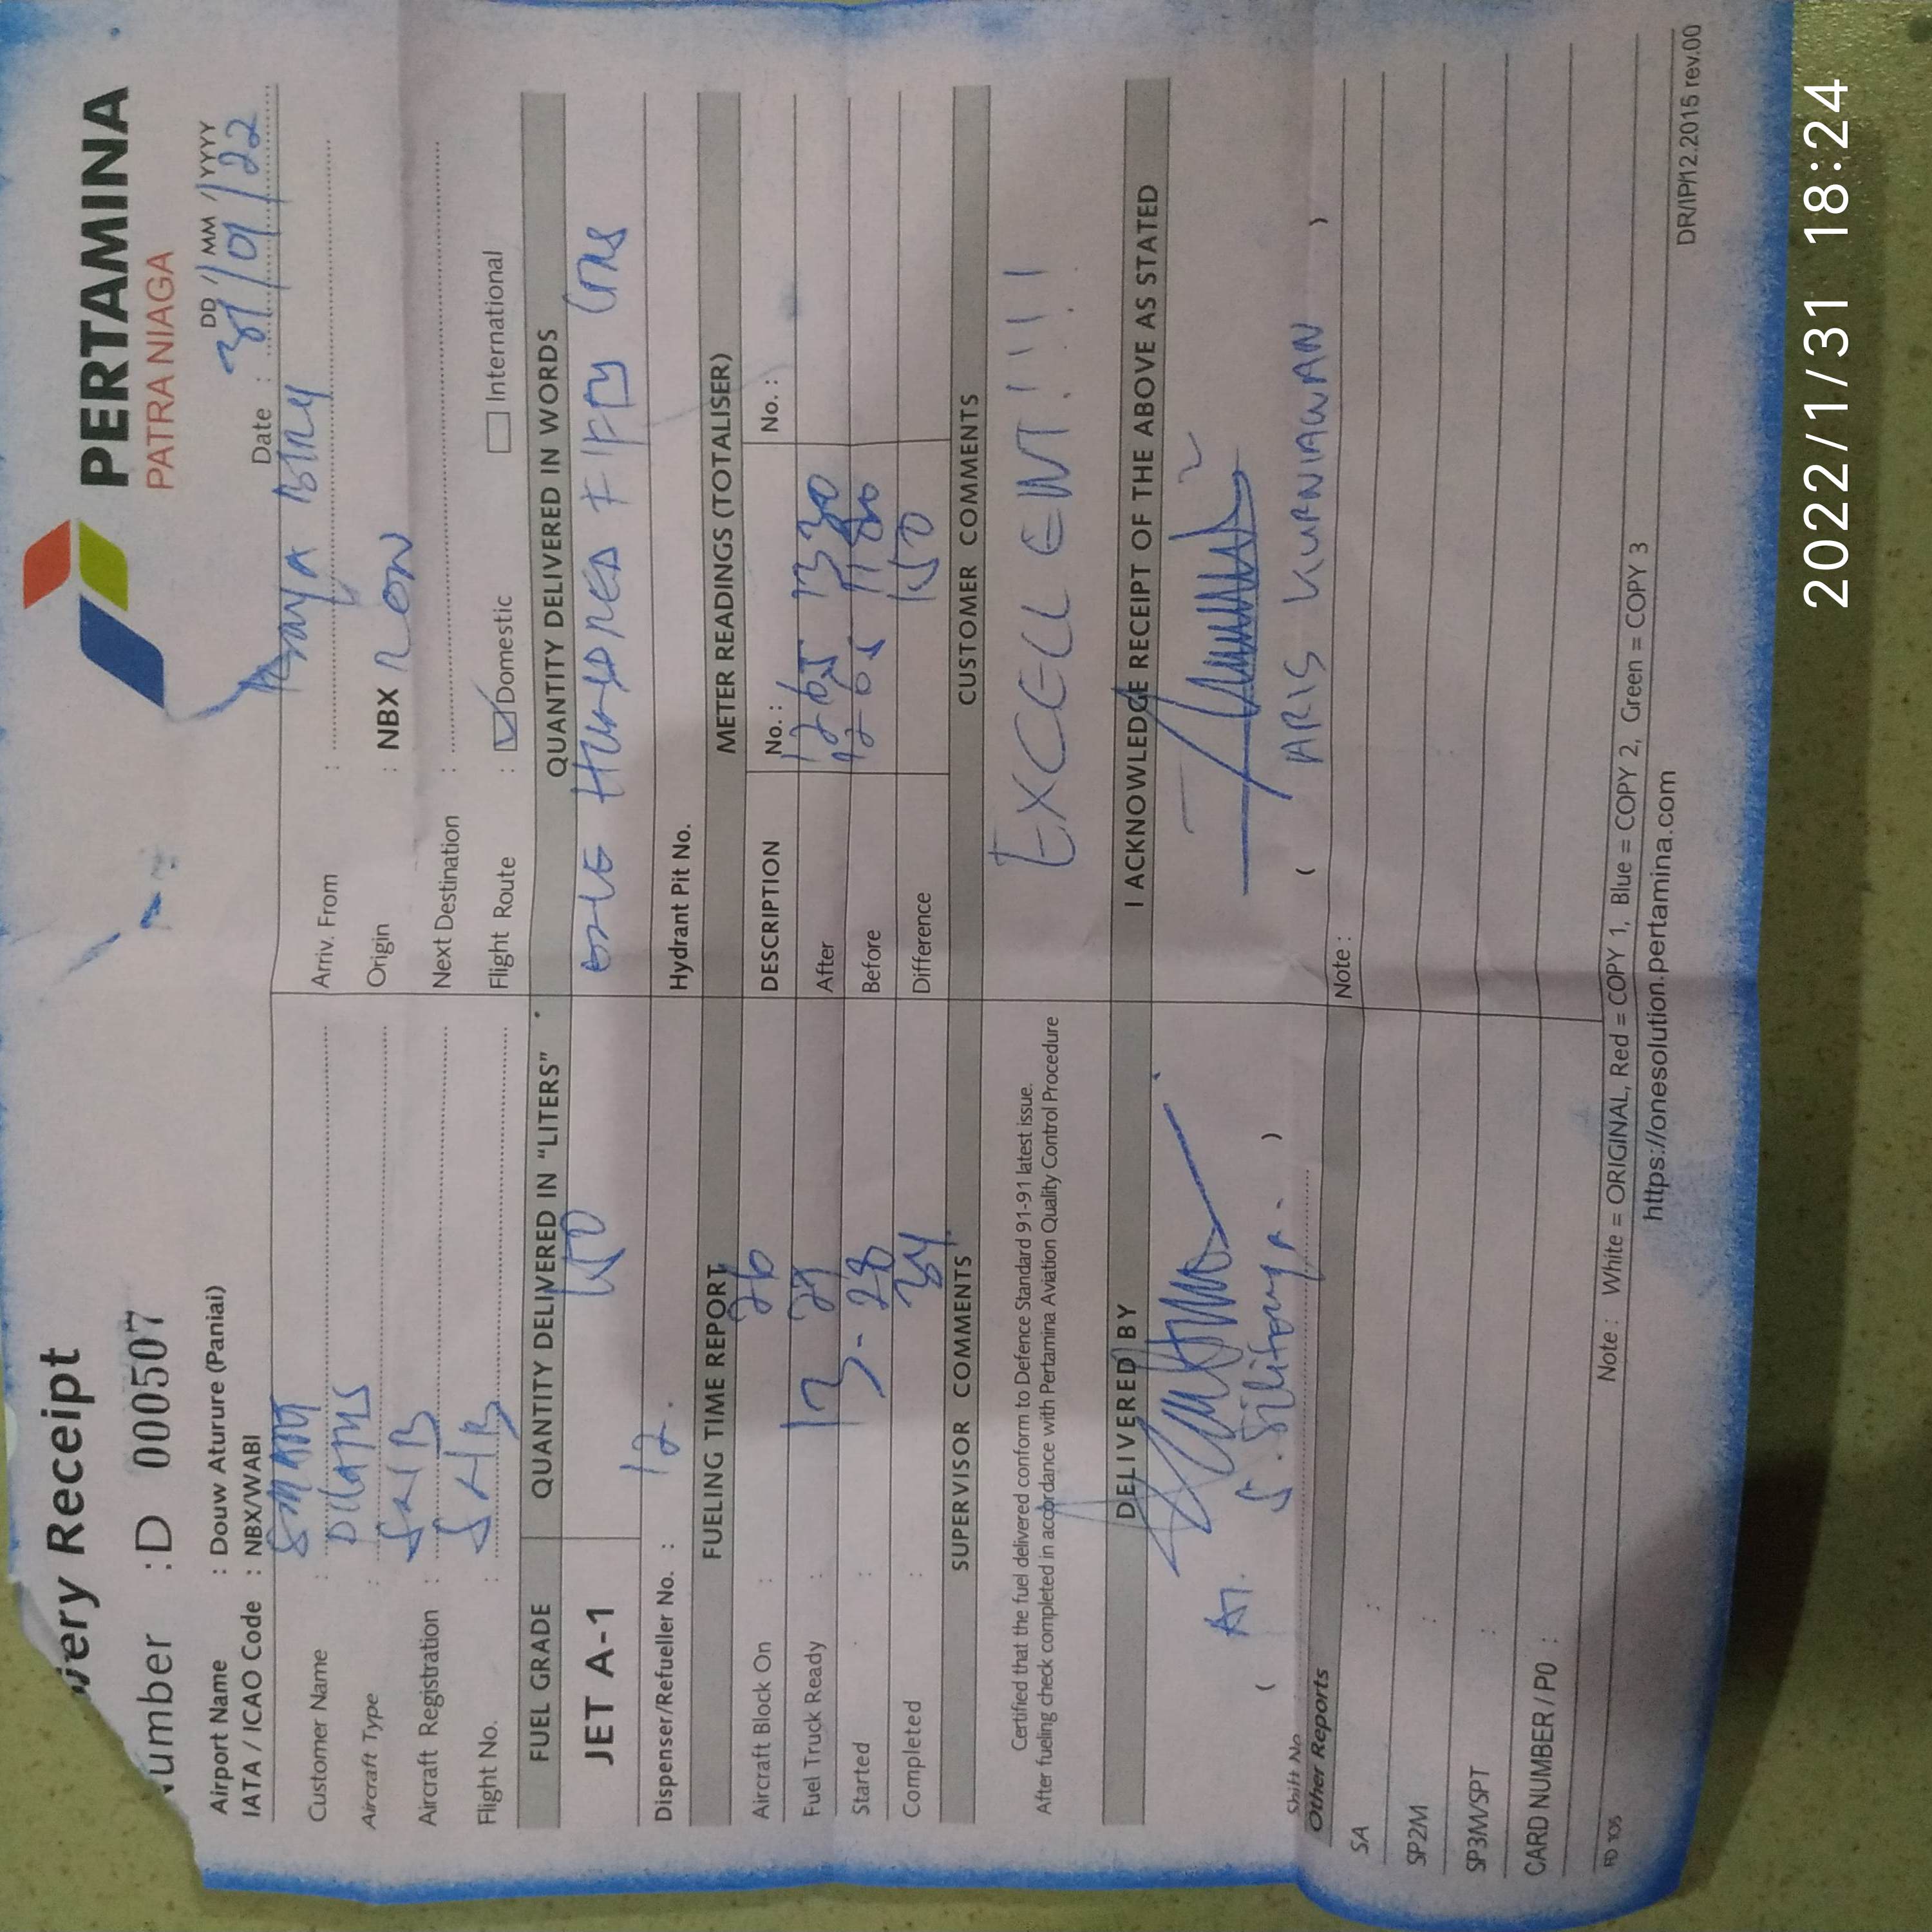 PERTAMINA
PATRA NIAGA
very Receipt
Number : D 000507
Date : DD / MM / YYYY
31/01/22
Airport Name : Douw Aturure (Paniai)
IATA / ICAO Code : NBX/WABI
Customer Name : SMART
Aircraft Type :
Aircraft Registration : SNB
Flight No. : SNB
Arriv. From :
Origin : NBX
Next Destination :
Flight Route : Domestic International
FUEL GRADE
JET A-1
QUANTITY DELIVERED IN "LITERS"
150
QUANTITY DELIVERED IN WORDS
ONE HUNDRED FIFTY
Dispenser/Refueller No. : 12.
Hydrant Pit No.
FUELING TIME REPORT
Aircraft Block On : 26
Fuel Truck Ready : 13 27
Started : 28
Completed : 34
METER READINGS (TOTALISER)
DESCRIPTION No. : No. :
After 1265 1330
Before 1265 1180
Difference 150
SUPERVISOR COMMENTS
Certified that the fuel delivered conform to Defence Standard 91-91 latest issue.
After fueling check completed in acordance with Pertamina Aviation Quality Control Procedure
CUSTOMER COMMENTS
EXCELLENT!!!!
DELIVERED BY
( )
I ACKNOWLEDGE RECEIPT OF THE ABOVE AS STATED
( ARIS KURNIAWAN )
Shift No
Other Reports
SA :
SP2M :
SP3M/SPT :
CARD NUMBER / PO :
Note :
FD 105
Note : White = ORIGINAL, Red = COPY 1, Blue = COPY 2, Green = COPY 3
https://onesolution.pertamina.com
DR/IP/12.2015 rev.00
2022/1/31 18:24